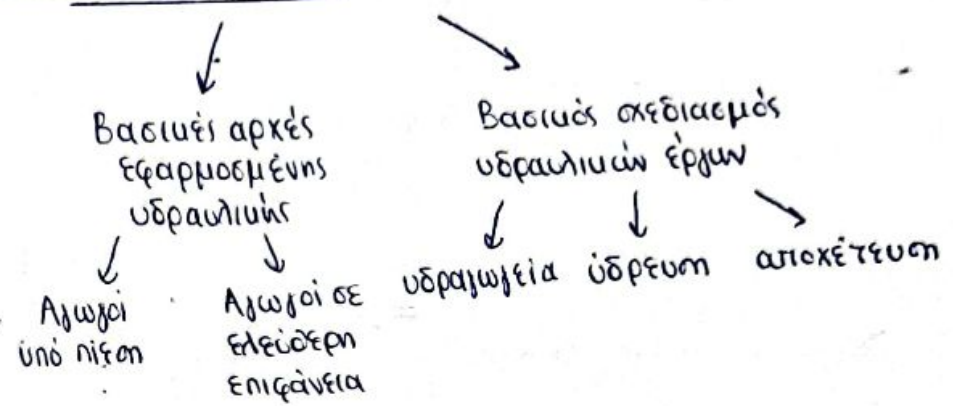 Βασικές αρχές
εφαρμοσμένης
υδραυλικής
Βασικός σχεδιασμός
υδραυλικών έργων
Αγωγοί
ύπό πίεση
Αγωγοί σε
ελεύθερη
επιφάνεια
υδραγωγεία ύδρευση αποχέτευση